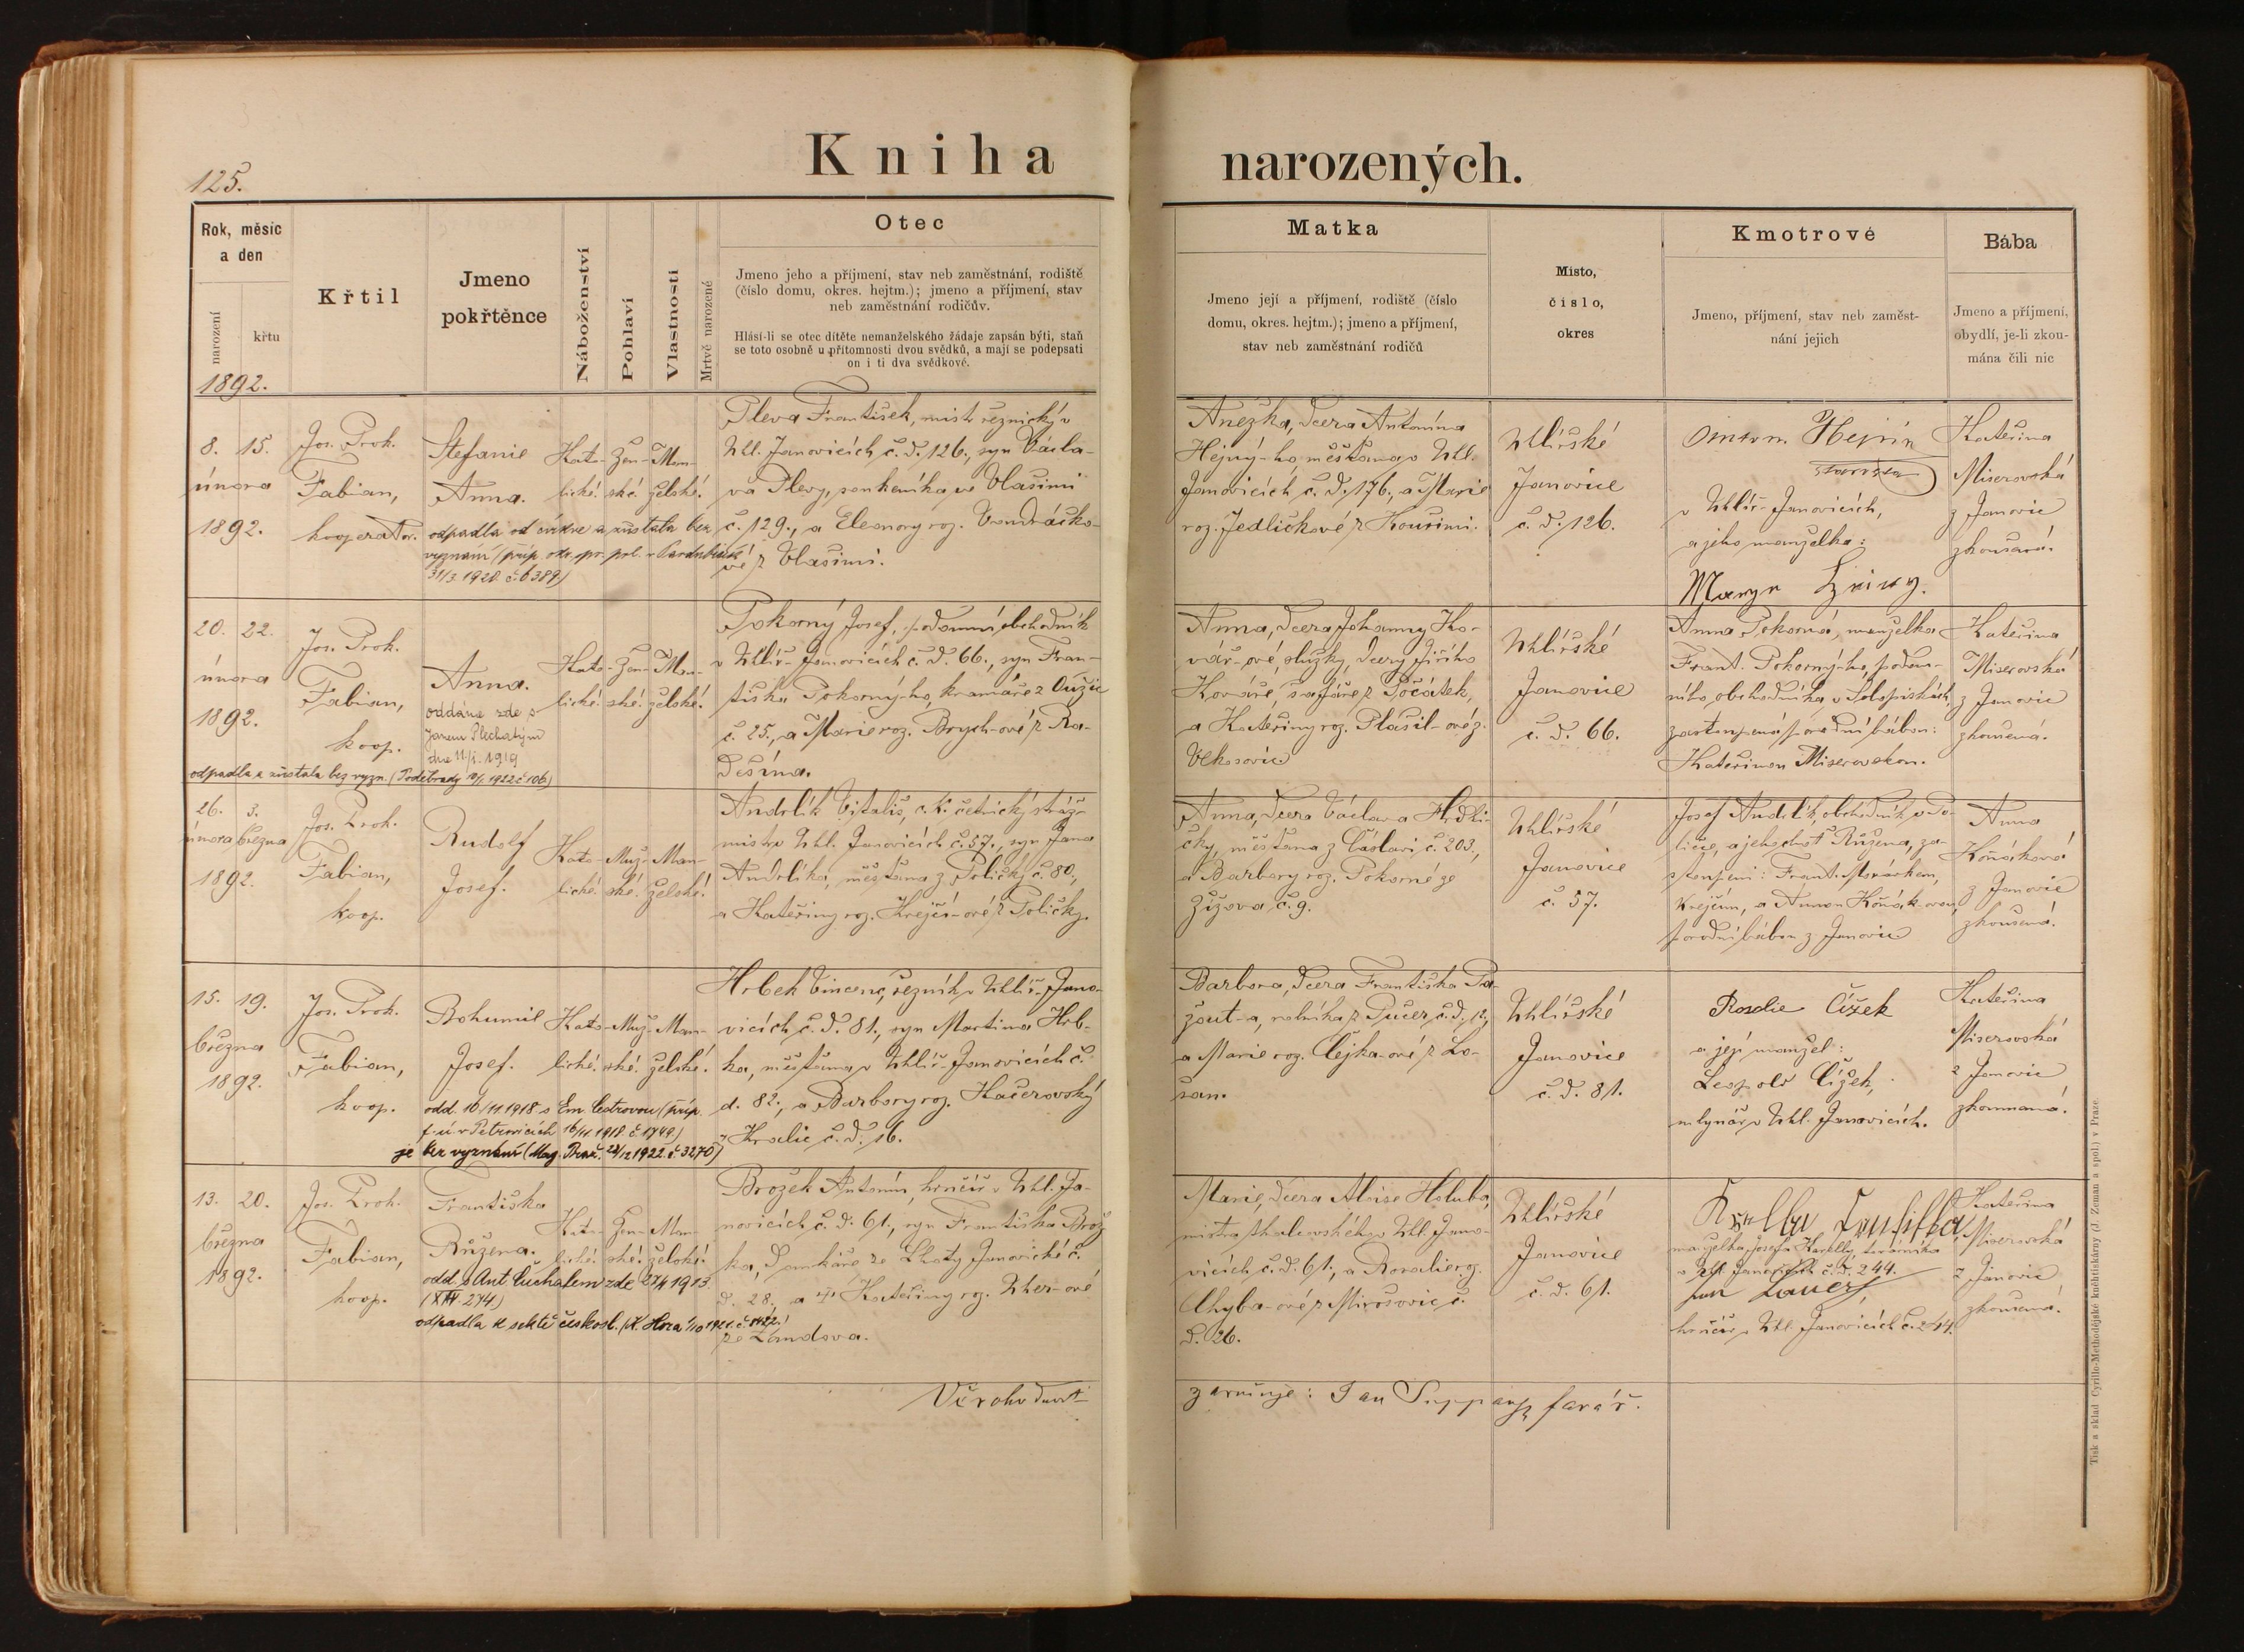 Kniha narozených.
125.
Rok, měsíc
a den
narození
křtu
Křtil
Jmeno
pokřtěnce
Náboženství
Pohlaví
Vlastnosti
Mrtvě narozené
Otec
Jmeno jeho a příjmení, stav neb zaměstnání, rodiště
(číslo domu, okres. hejtm.); jmeno a příjmení, stav
neb zaměstnání rodičův.
Hlásí-li se otec dítěte nemanželského žádaje zapsán býti, staň
se toto osobně u přítomnosti dvou svědků, a mají se podepsati
on i ti dva svědkové.
Matka
Jmeno její a příjmení, rodiště (číslo
domu, okres. hejtm.); jmeno a příjmení,
stav neb zaměstnání rodičů
Místo,
číslo,
okres
Kmotrové
Jmeno, příjmení, stav neb zaměst-
nání jejich
Bába
Jmeno a příjmení,
obydlí, je-li zkou-
mána čili nic
1892.
8. 15.
února
1892.
Jos. Prok.
Fabian,
kooperator.
Stefanie
Anna.
odpadla od církve a zůstala bez
vyznání (příp. okr. spr. pol. v Pardubicích
31/3 1920. č. 6389)
Kato- Žen- Man-
lické. ské. želské.
Pleva František, mistr řeznický v
Uhl. Janovicích č. d. 126., syn Václa-
va Plevy, punkeníka ve Vlašimi
č. 129., a Eleonory roz. Vondráčko-
vé z Vlašimi.
Anežka, dcera Antonína
Hejný-ho, měšťana v Uhl.
Janovicích č. d. 176., a Marie
roz. Jedličkové z Kouřimi.
Uhlířské
Janovice
č. d. 126.
v Uhlíř-Janovicích,
a jeho manželka:
Kateřina
Miserovská
z Janovic
zkoušená.
20. 22.
února
1892.
Jos. Prok.
Fabian,
koop.
Anna.
oddána zde s
Janem Plechatým
dne 11/1. 1919
odpadla a zůstala bez vyzn. (Poděbrady 1922 č 106)
Kato- Žen- Man-
lické. ské. želské.
Pokorný Josef, podomní obchodník
v Uhlíř-Janovicích č. d. 66., syn Fran-
tiška Pokorný-ho, kramáře z Oužic
č. 25., a Marie roz. Brych-ové z Ra-
dešína.
Anna, dcera Johanny Ko-
vář-ové, služky, dcery Jiřího
Kováře, šafáře z Počátek,
a Kateřiny roz. Plašil-ové z
Uhlířské
Janovice
č. d. 66.
Anna Pokorná, manželka
Frant. Pokorný-ho, podom-
ního obchodníka v
zastoupená porodní bábou:
Kateřinou Miserovskou.
Kateřina
Miserovská
z Janovic
zkoušená.
26. 3.
února března
1892.
Jos. Prok.
Fabian,
koop.
Rudolf
Josef.
Kato- Muž- Man-
lické. ské. želské.
Andrlík Vitališ, c. k. četnický stráž-
mistr v Uhl. Janovicích č. 57., syn Jana
Andrlíka, měšťana z Poličky č. 80.,
a Kateřiny roz. Krejčí-ové z Poličky.
Anna, dcera Václava Hrdli-
čky, měšťana z Čáslavi č. 203.,
a Barbory roz. Pokorné ze
Žižova č. 9.
Uhlířské
Janovice
č. 57.
Josef Andrlík, obchodník v Po-
ličce, a jeho choť Růžena, za-
stoupeni: Frant. Morávkem,
krejčím, a Annou Koňák-ovou,
porodní bábou z Janovic
Anna
Koňáková
z Janovic
zkoušená.
15. 19.
března
1892.
Jos. Prok.
Fabian,
koop.
Bohumil
Josef.
odd. 16/11. 1918 s Em. Cestrovou (příp.
f. ú. v Petrovicích 16/11 1918 č. 1749.)
je bez vyznání (Mag. Praž. 28/12 1922. č. 3270)
Kato- Muž- Man-
lické. ské. želské.
Hrbek Vincenc, řezník v Uhlíř-Jano-
vicích č. d. 81., syn Martina Hrb-
ka, měšťana v Uhlíř-Janovicích č.
d. 82., a Barbory roz. Kačerovský
z Kralic č. d. 16.
Barbora, dcera Františka Pa-
zout-a, rolníka z Pučer, č. d. 12,
a Marie roz. Čejka-ové z Lo-
san.
Uhlířské
Janovice
č. d. 81.
Rosalie Čížek
a její manžel:
Leopold Čížek,
mlynář v Uhl. Janovicích.
Kateřina
Miserovská
z Janovic
zkoumaná.
13. 20.
března
1892.
Jos. Prok.
Fabian,
koop.
Františka
Růžena.
odd. s Ant. Čuchalem zde 27/4 1913.
(XIV. 274)
odpadla k sektě českosl. (K. Hora 1/10 1921. č. 1422.)
Kato- Žen- Man-
lické. ské. želské.
Brožek Antonín, hrnčíř v Uhl. Ja-
novicích č. d. 61., syn Františka Brož-
ka, domkáře ze Lhoty Janovické č.
d. 28., a Kateřiny roz. Uher-ové
ze Žandova.
Marie, dcera Aloise Holuba,
mistra v Uhl. Jano-
vicích č. d. 61., a Rosalie roz.
Chyba-ové z Mirošovic č.
d. 26.
Uhlířské
Janovice
č. d. 61.
manželka Josefa
v Uhl. Janovicích č. d. 244.
Jan Lauer
hrnčíř v Uhl. Janovicích č. 244.
Kateřina
Miserovská
z Janovic
zkoušená.
Věrohodnost zaručuje: Jan farář.
Tisk a sklad Cyrillo-Methodějské knihtiskárny (J. Zeman a spol.) v Praze.